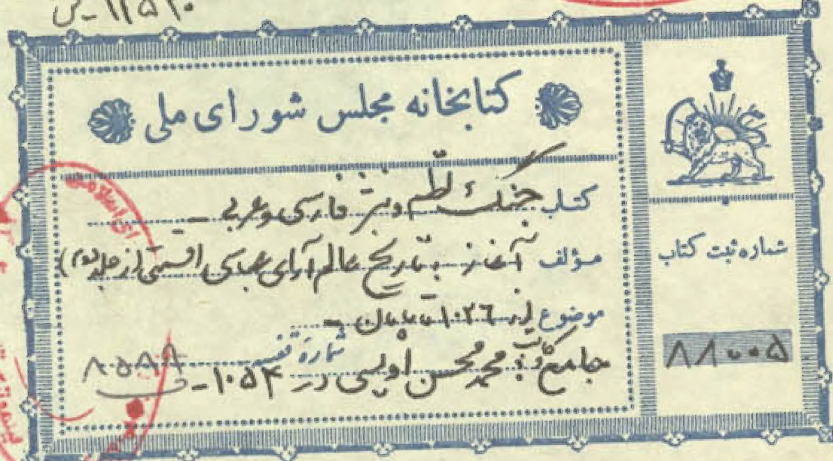 ۱۱۵۲۰ - ش
کتابخانه مجلس شورای ملی
کتاب جنگ نظم و نثر فارسی و عربی -
مؤلف آغاز: تاریخ عالم آرای عباسی (قسمتی از جلد دوم)
موضوع از ۱۰۲۶ تا پایان -
شماره قفسه
جامع و کاتب: محمد محسن اویسی در ۱۰۵۴ -
۸۰۵۸۸
شماره ثبت کتاب
۸۸۰۰۵